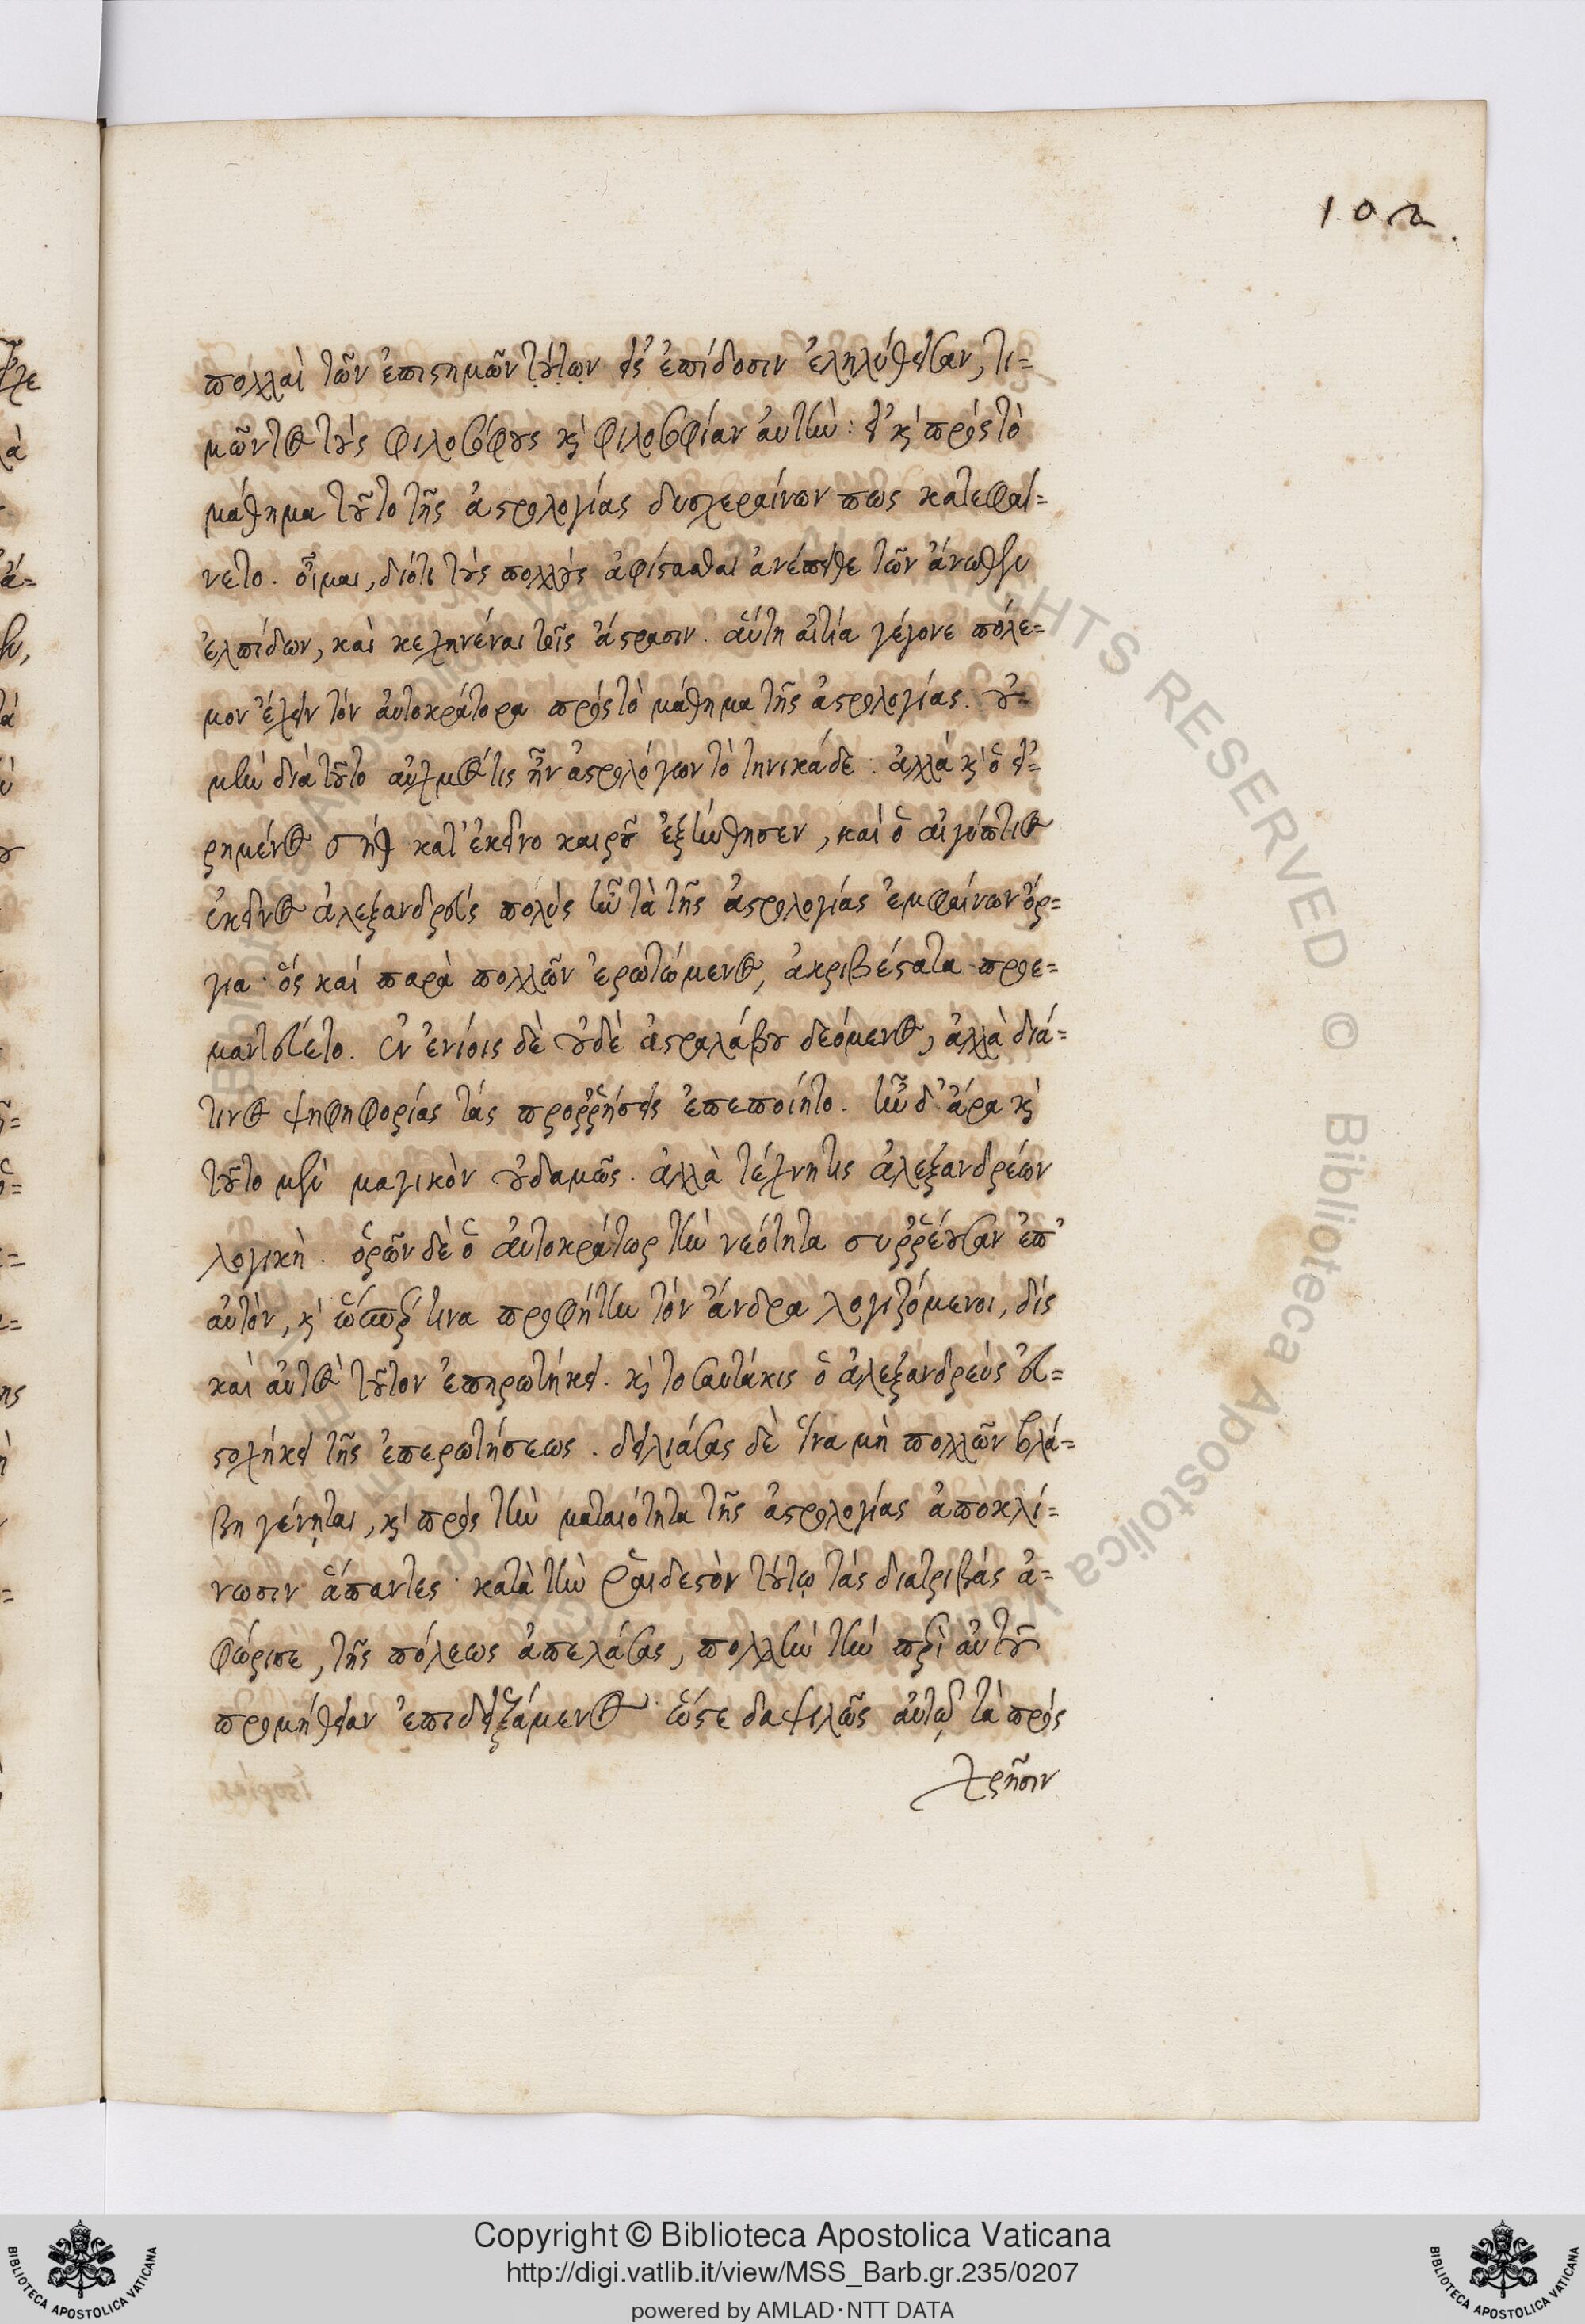 102.
πολλαὶ τῶν ἐπιστημῶν τούτων εἰς ἐπίδοσιν ἐληλύθεισαν, τι=
μῶντος τοὺς φιλοσόφους κỳ φιλοσοφίαν αὐτήν: εἰ κỳ πρὸς τὸ
μάθημα τοῦτο τῆς ἀστρολογίας δυσχεραίνων πως κατεφαί=
νετο. οἶμαι, διότι τοὺς πολλοὺς ἀφίστασθαι ἀνέπειθε τῶν ἄνωθεν
ἐλπίδων, καὶ κεχηνέναι τοῖς ἄστρασιν. αὕτη αἰτία γέγονε πόλε=
μον ἔχειν τὸν αὐτοκράτορα πρὸς τὸ μάθημα τῆς ἀστρολογίας. οὐ
μὴν διὰ τοῦτο αὐχμός τις ἦν ἀστρολόγων τὸ τηνικάδε: ἀλλὰ κỳ ὁ εἰ=
ρημένος σὴθ κατ' ἐκεῖνο καιροῦ ἐξήνθησεν, καὶ ὁ αἰγύπτιος
ἐκεῖνος ἀλεξανδρεὺς πολὺς ἦν τὰ τῆς ἀστρολογίας ἐμφαίνων ὄρ=
για· ὃς καὶ παρὰ πολλῶν ἐρωτώμενος, ἀκριβέστατα προε=
μαντεύετο. ἐν ἐνίοις δὲ οὐδὲ ἀστρολάβου δεόμενος, ἀλλὰ διά=
τινος ψηφηφορίας τὰς προῤῥήσεις ἐπεποίητο. ἦν δ' ἄρα κỳ
τοῦτο μὲν μαγικὸν οὐδαμῶς. ἀλλὰ τέχνη τις ἀλεξανδρέων
λογικὴ. ὁρῶν δὲ ὁ αὐτοκράτωρ τὴν νεότητα συῤῥέουσαν ἐπ'
αὐτὸν, κỳ ὥσπερ τινα προφήτην τὸν ἄνδρα λογιζόμενοι, δὶς
καὶ αὐτὸς τοῦτον ἐπηρωτήκει. κỳ τοσαυτάκις ὁ ἀλεξανδρεὺς εὐ=
στοχήκει τῆς ἐπερωτήσεως. δειλιάσας δὲ ἵνα μὴ πολλῶν βλά=
βη γένηται, κỳ πρὸς τὴν ματαιότητα τῆς ἀστρολογίας ἀποκλί=
νωσιν ἅπαντες· κατὰ τὴν ῥαιδεστὸν τούτῳ τὰς διατριβὰς ἀ=
φώρισε, τῆς πόλεως ἀπελάσας, πολλὴν τὴν περὶ αὐτοῦ
προμήθειαν ἐπιδειξάμενος· ὥστε δαψιλῶς αὐτῷ τὰ πρὸς
χρῆσιν
Copyright © Biblioteca Apostolica Vaticana
http://digi.vatlib.it/view/MSS_Barb.gr.235/0207
powered by AMLAD·NTT DATA